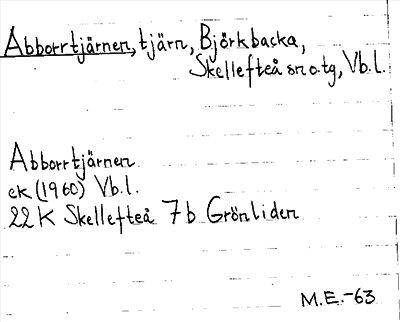 Abborrtjärnen, tjärn, Björkbacka,
Skellefteå sn o. tg, Vb.l.
Abborrtjärnen
ek (1960) Vb.l.
22 K Skellefteå 7 b Grönliden
M.E.-63